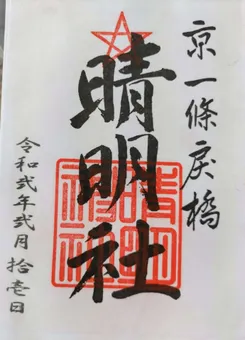 京一條戻橋
晴明社
令和弐年弐月拾壱日
晴明神社